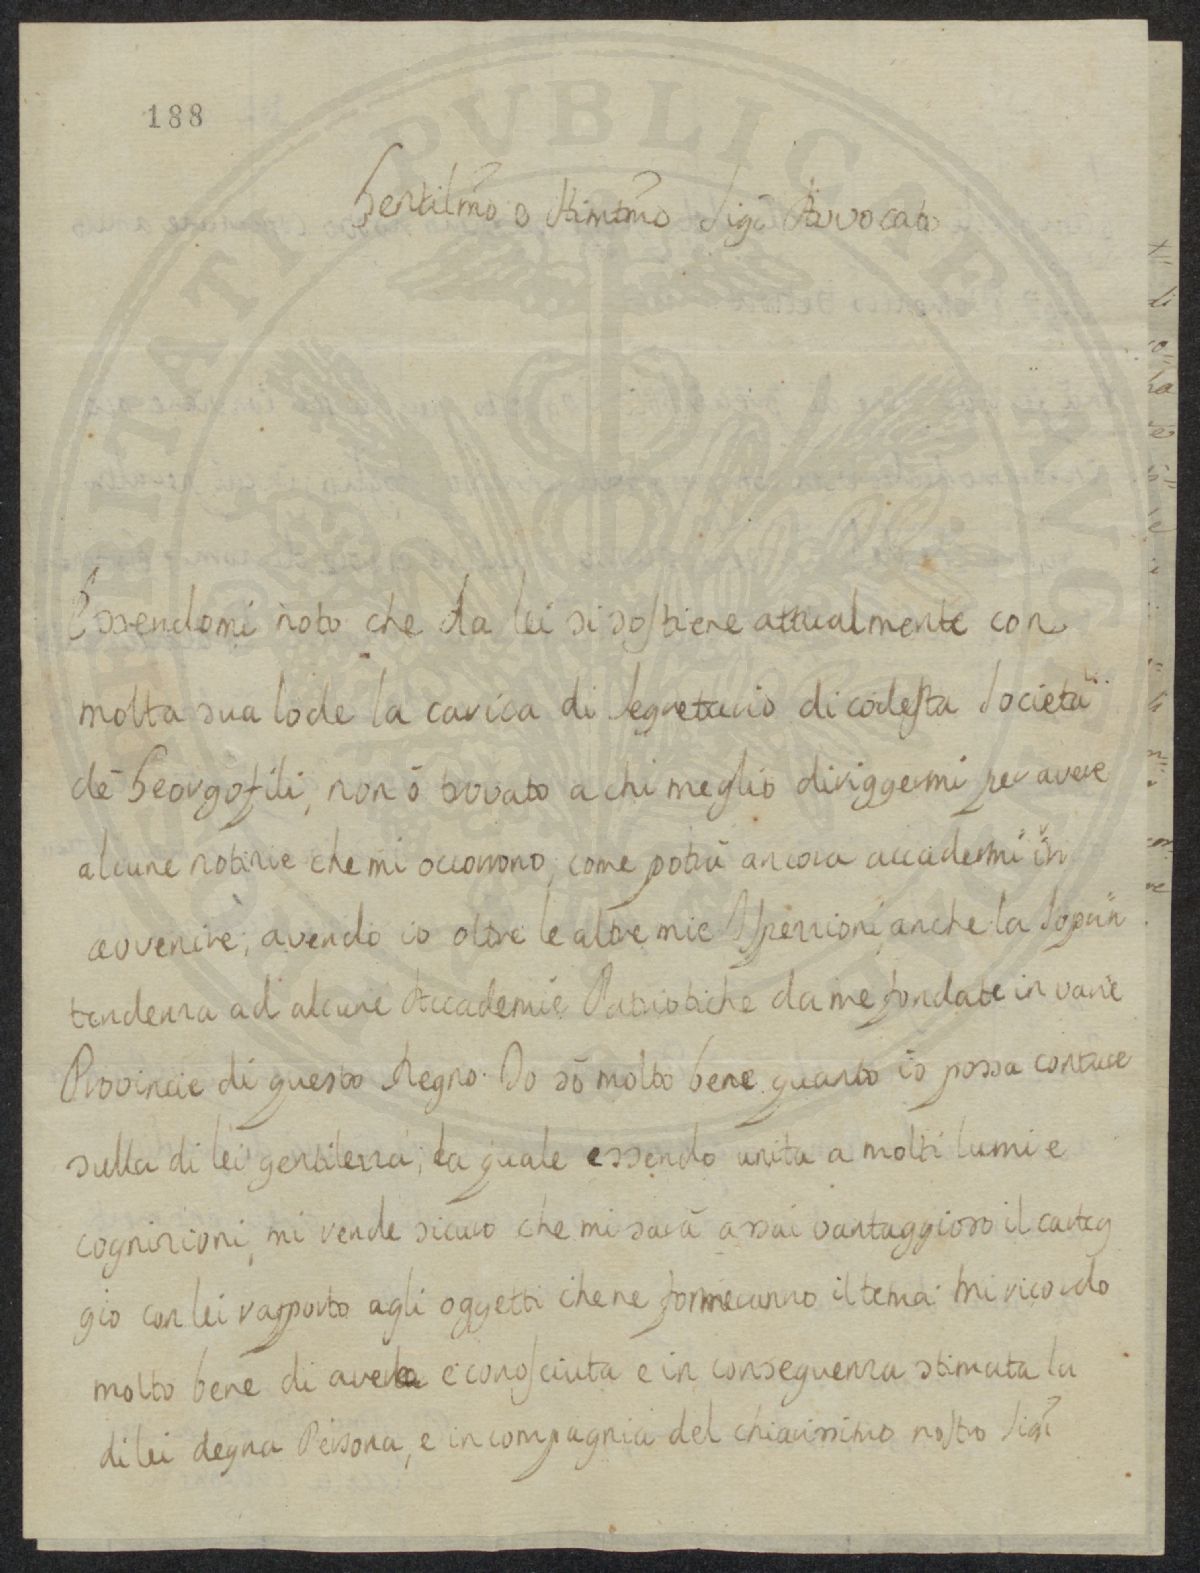 188
PVBLICAE
Gentilmo e Stimmo Sigr Avvocato
Essendomi noto che da lei si sostiene attualmente con
molta sua lode la carica di Segretario di codesta Società
dè Georgofili, non ò trovato a chi meglio diriggermi per avere
alcune notizie che mi occorrono, come potrà ancora accadermi in
avvenire; avendo io oltre le altre mie Ispezzioni anche la Soprin
tendenza ad alcune Accademie Patriotiche da me fondate in varie
Provincie di questo Regno. Io sò molto bene quanto io possa contare
sulla di lei gentilezza, la quale essendo unita a molti lumi e
cognizioni, mi rende sicuro che mi sarà assai vantaggioso il carteg
gio con lei rapporto agli oggetti che ne formeranno il tema. Mi ricordo
molto bene di avere conosciuta e in conseguenza stimata la
di lei degna Persona, e in compagnia del chiarissimo nostro Sigr